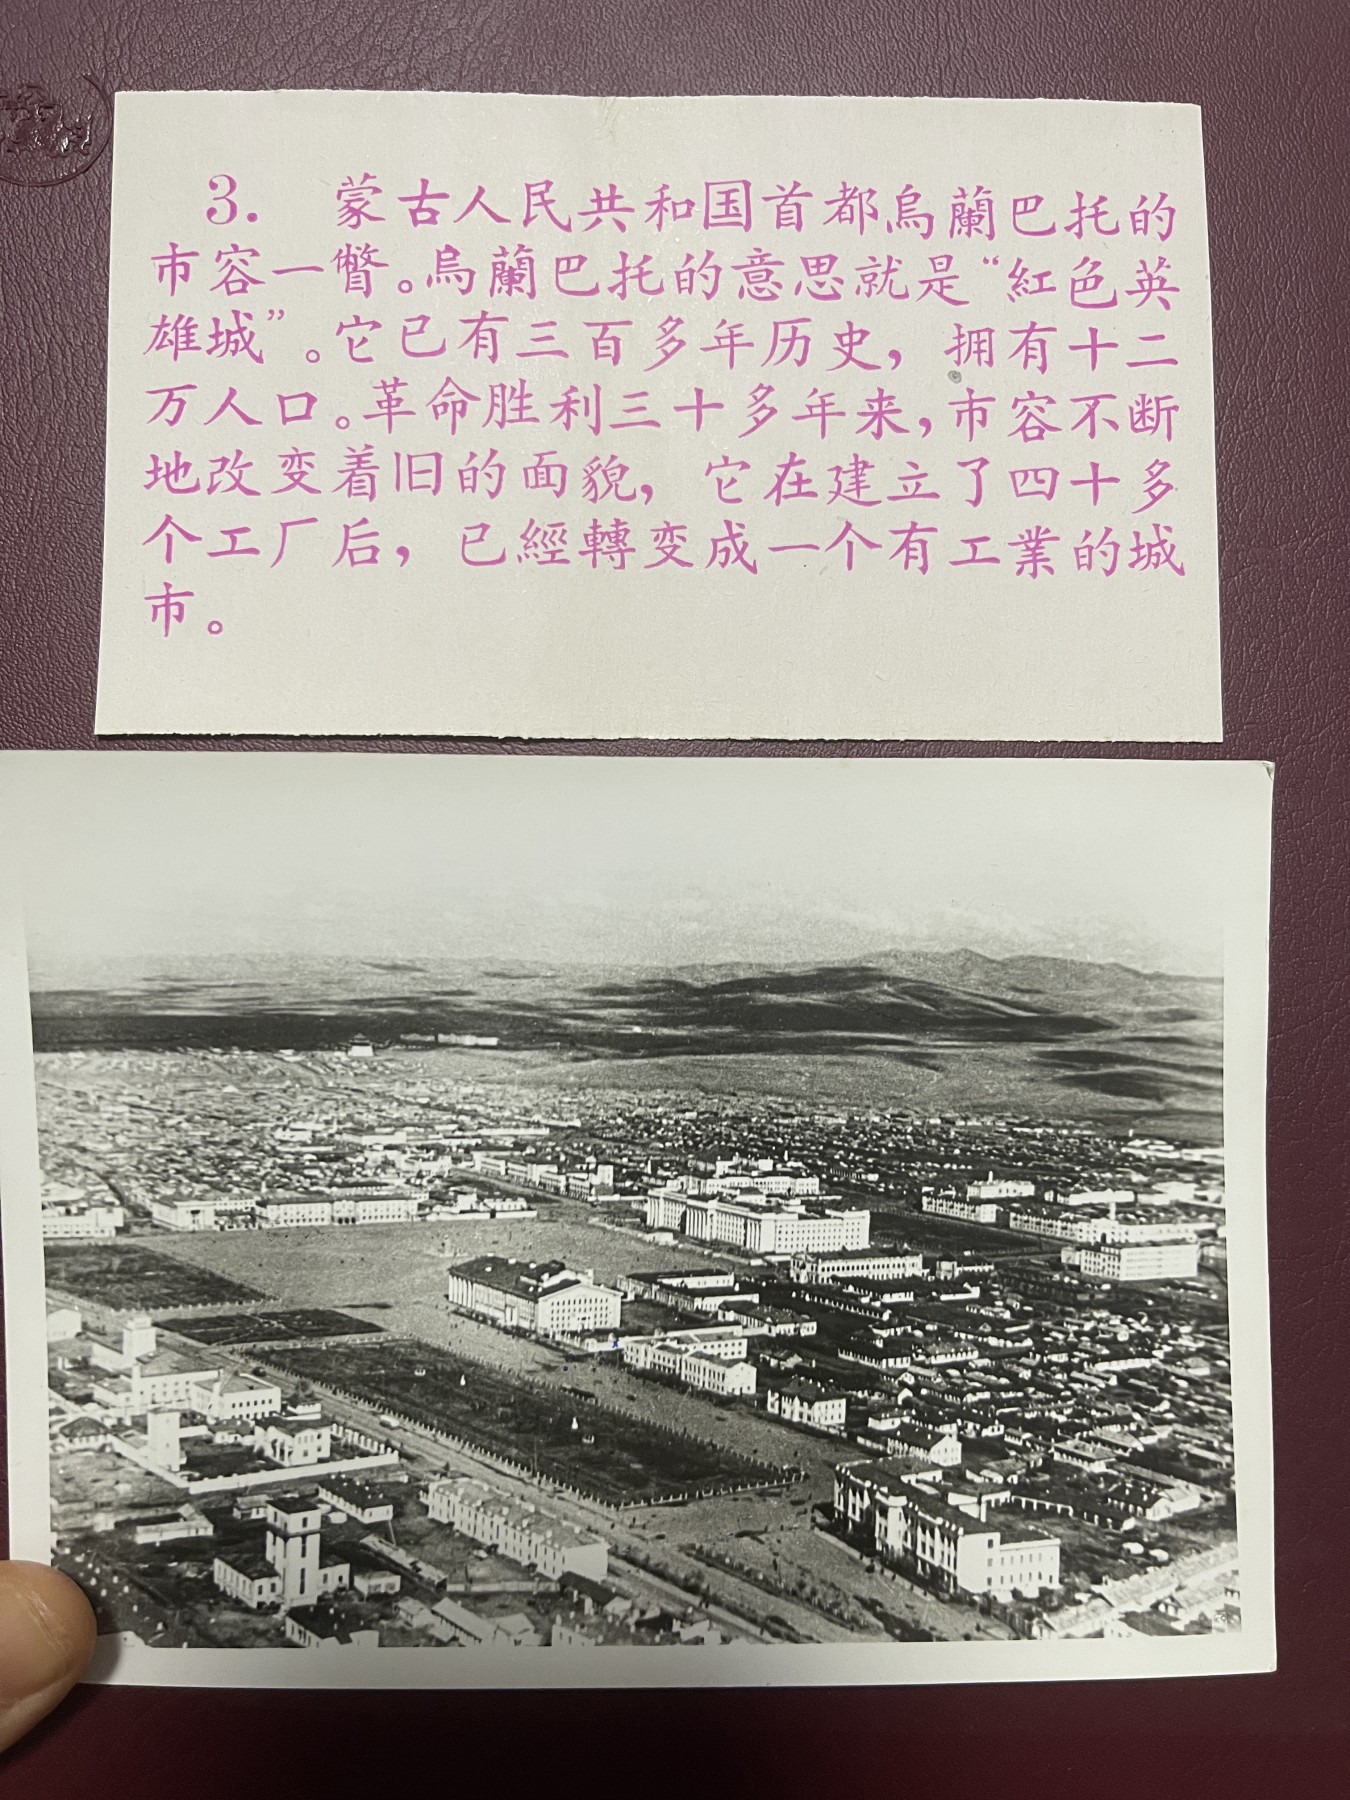 3. 蒙古人民共和国首都烏蘭巴托的
市容一瞥。烏蘭巴托的意思就是“紅色英
雄城”。它已有三百多年历史，拥有十二
万人口。革命胜利三十多年来，市容不断
地改变着旧的面貌，它在建立了四十多
个工厂后，已經轉变成一个有工業的城
市。